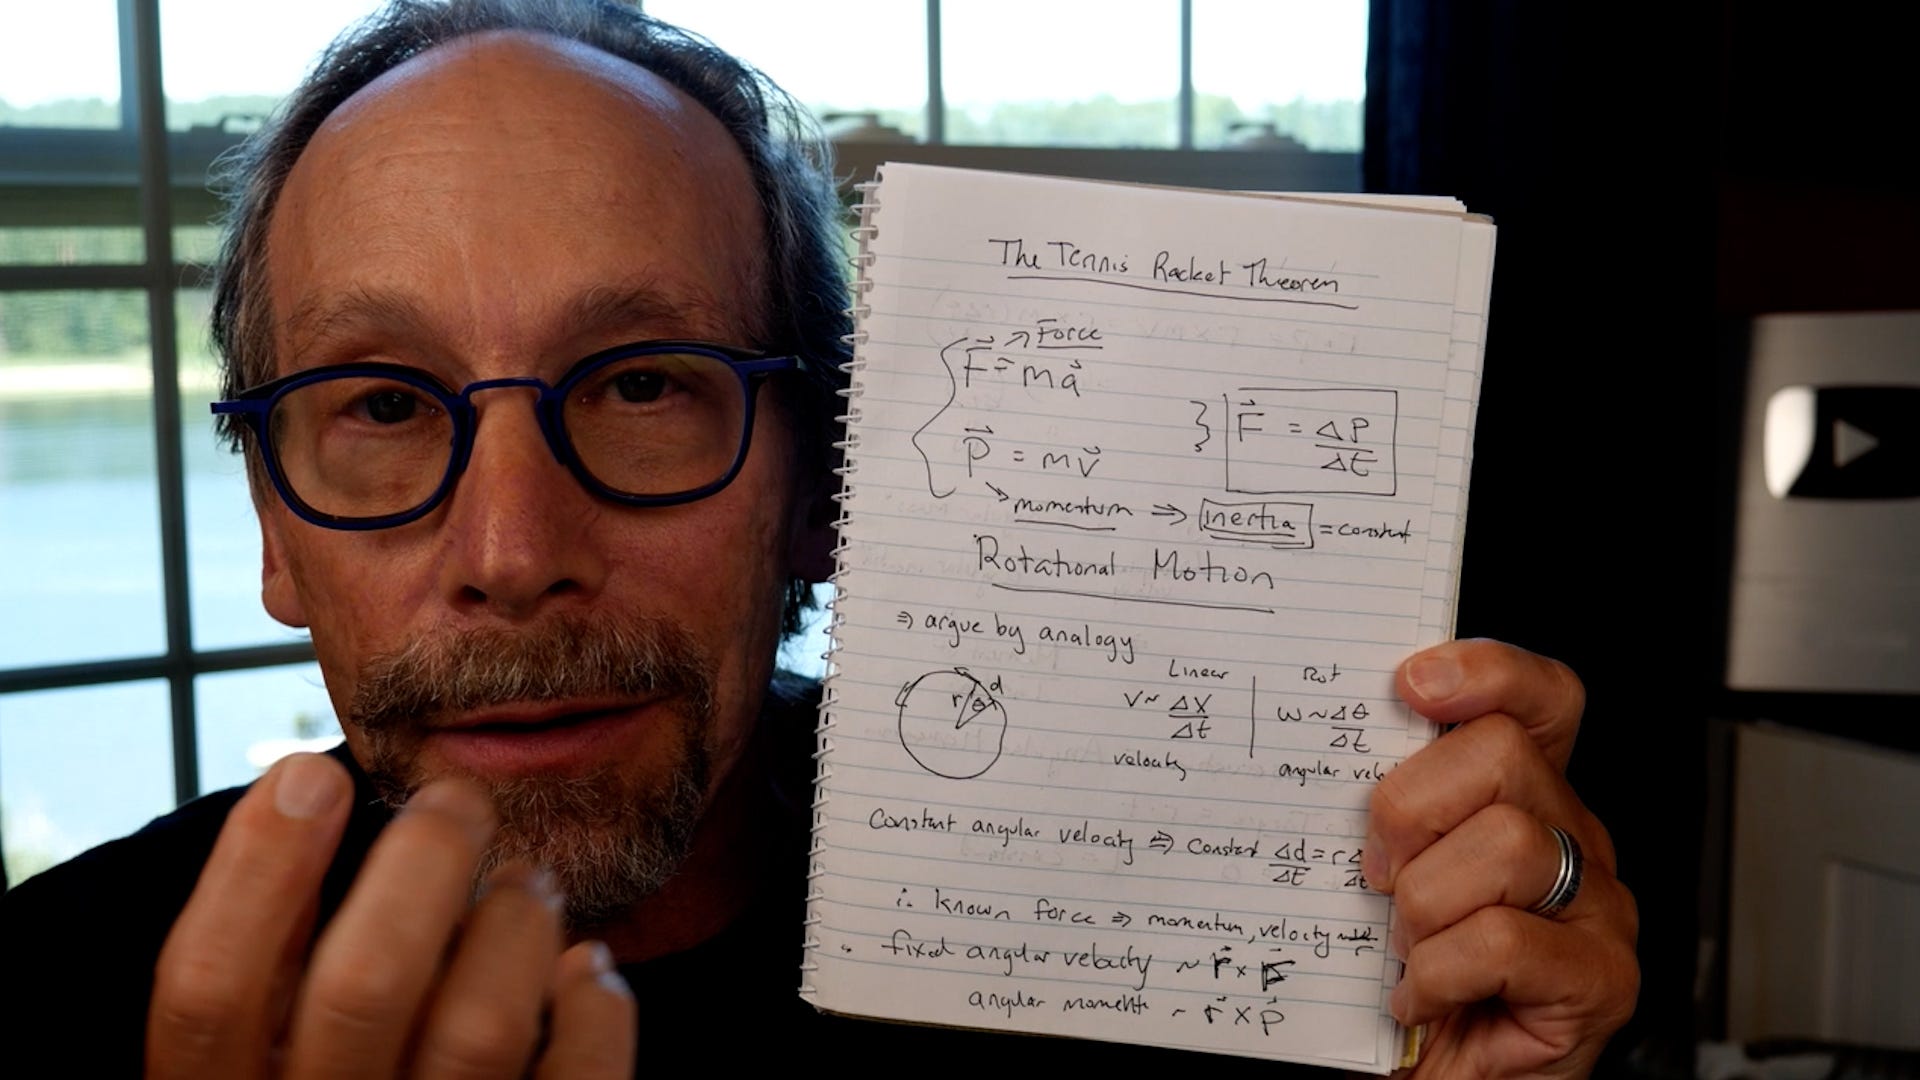 The Tennis Racket Theorem
Force
F⃗ = ma⃗
F⃗ = ΔP/Δt
P⃗ = mv⃗
momentum ⇒ inertia = constant
Rotational Motion
⇒ argue by analogy
Linear | Rot
r θ d
v ~ Δx/Δt | ω ~ Δθ/Δt
velocity | angular velo
Constant angular velocity ⇒ constant Δd/Δt = r Δ/Δt
known force ⇒ momentum, velocity
fixed angular velocity ~ r⃗ ×
angular momentum ~ r⃗ × p⃗